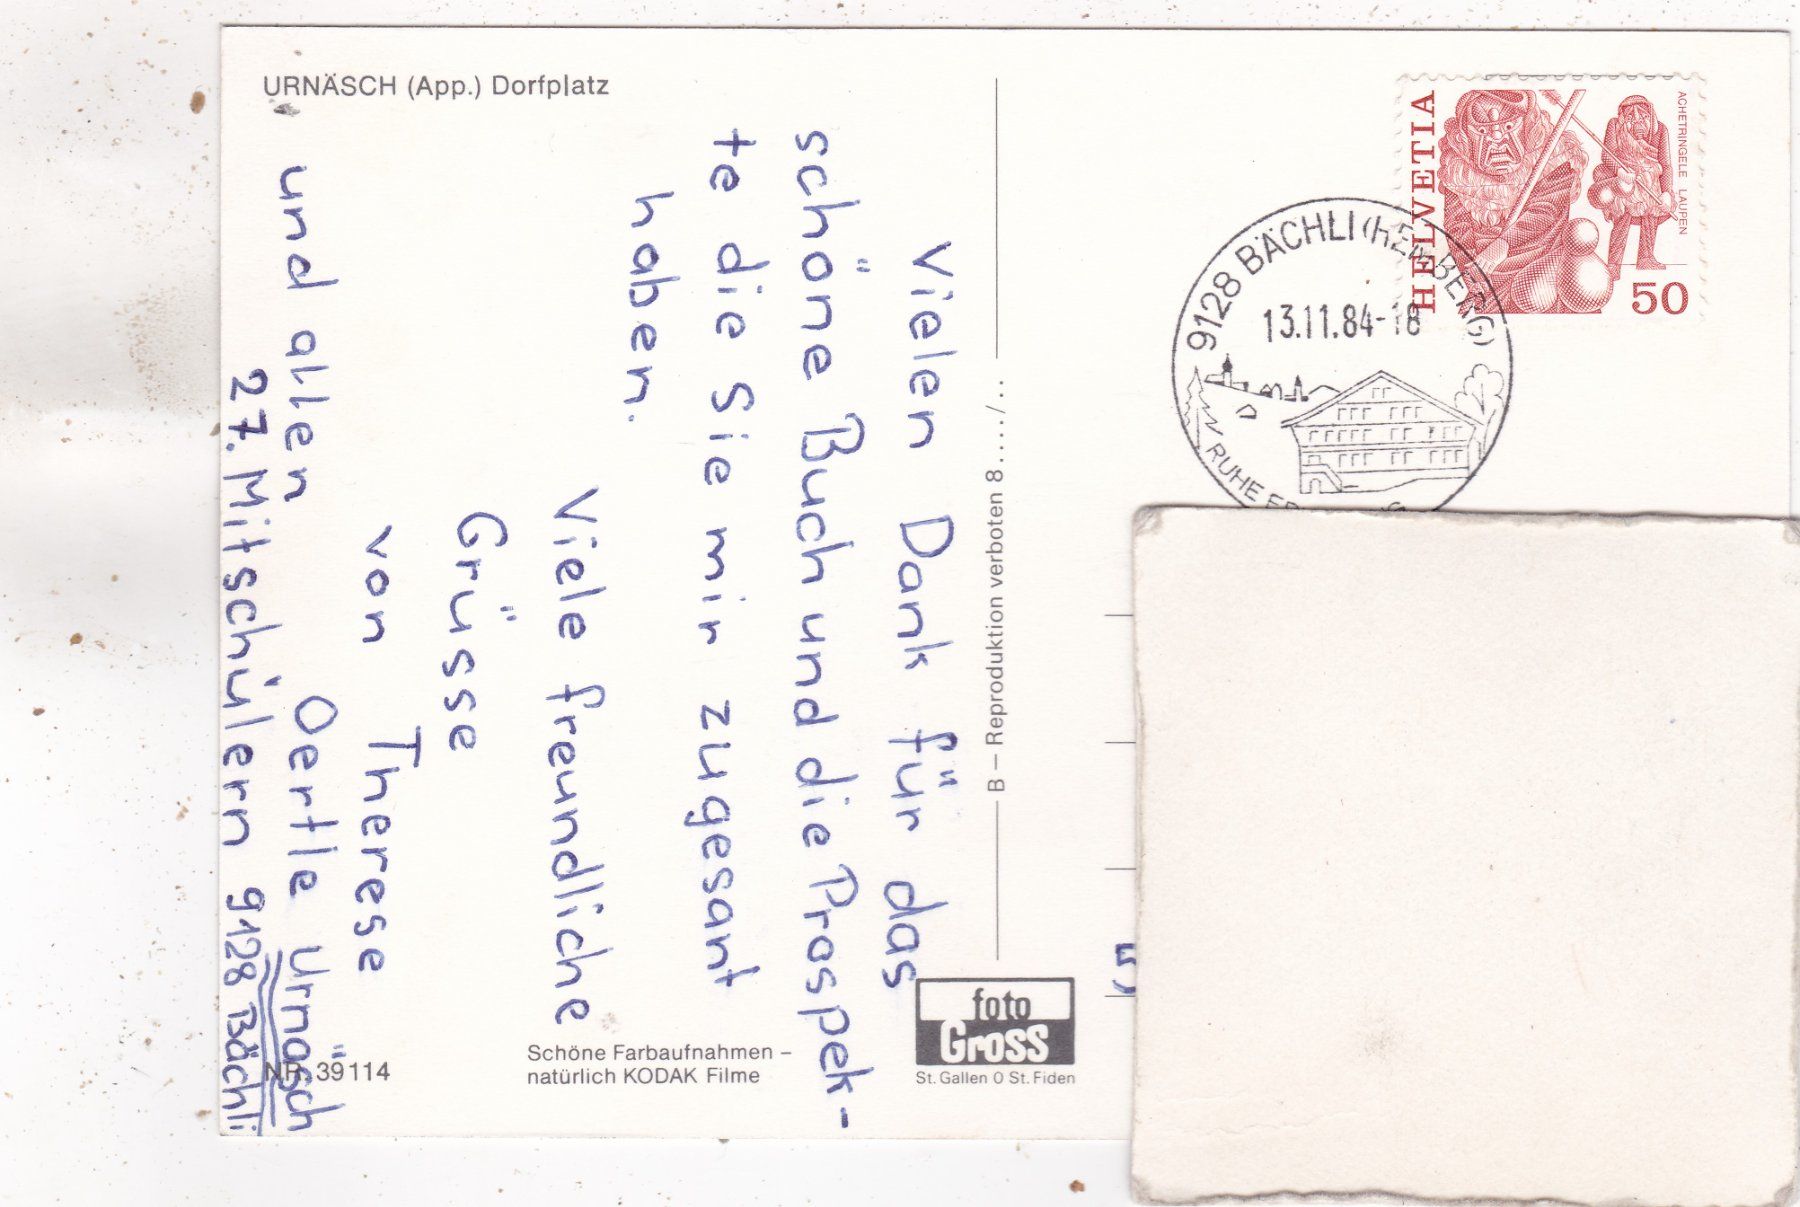 URNÄSCH (App.) Dorfplatz
Vielen Dank für das
schöne Buch und die Prospek-
te die Sie mir zugesant
haben.
Viele freundliche
Grüsse
von Therese
und allen Oertle Urnäsch
27. Mitschülern 9128 Bächli
NR. 39114
Schöne Farbaufnahmen –
natürlich KODAK Filme
B – Reproduktion verboten 8...../..
foto
Gross
St. Gallen O St. Fiden
HELVETIA
ACHETRINGELE LAUPEN
50
9128 BÄCHLI (HEMBERG)
13.11.84-18
RUHE
5